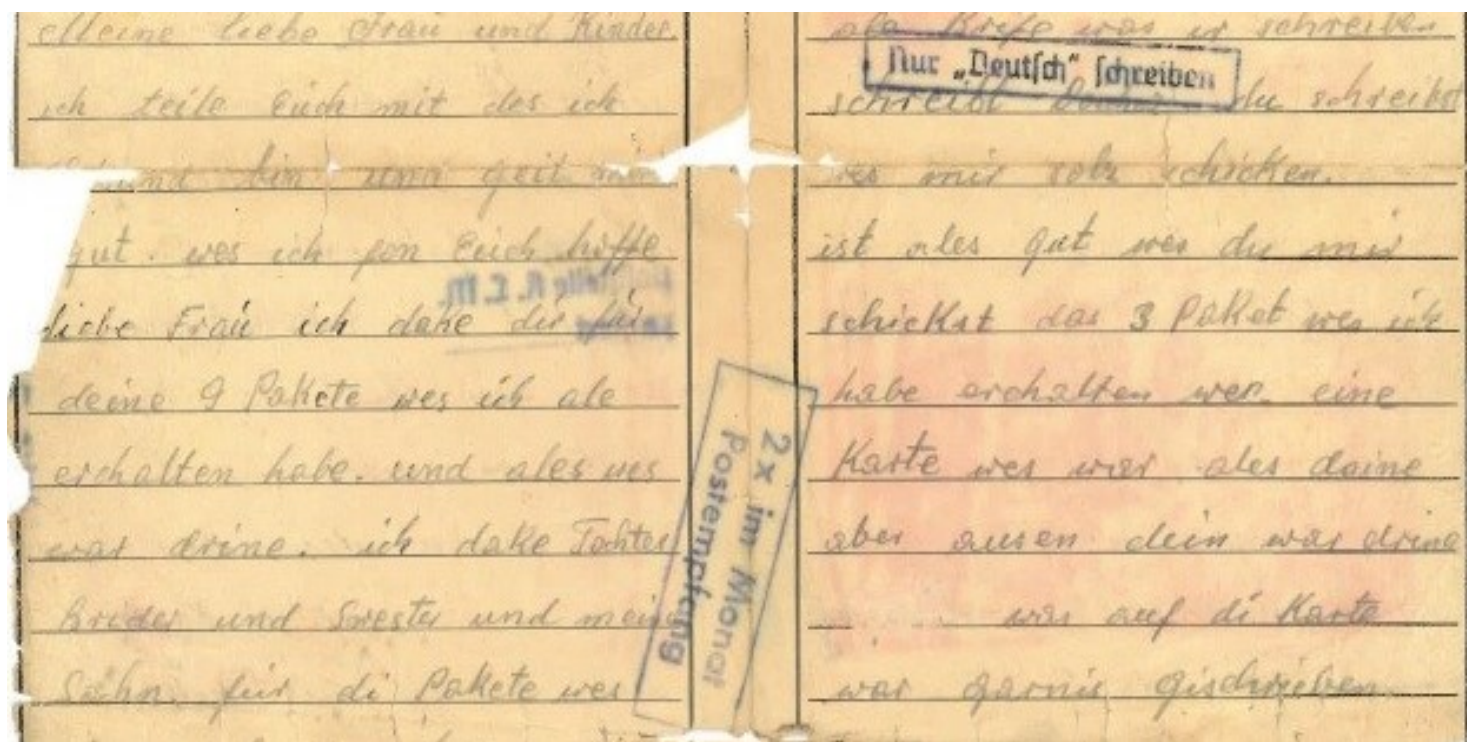 Meine liebe Frau und Kinder.
ich teile Euch mit des ich
bin und geit mir
gut. wes ich fon Euch hoffe
liebe Frau ich dake dir für
deine 9 Pakete wes ich ale
erchalten habe. und ales wes
war drine. ich dake Tohter
Bruder und Swester und mein
Sohn, für di Pakete wes
2x im Monat
Postempfang
ale Brife was ir schreiben
Nur „Deutsch“ schreiben
schreibt du schreibst
mir schicken.
ist ales gut wes du mir
schickst das 3 Paket wes ich
habe erchalten wer eine
Karte wes war ales
aber ausen dein war drine
was auf di Karte
war garnis gischrieben.